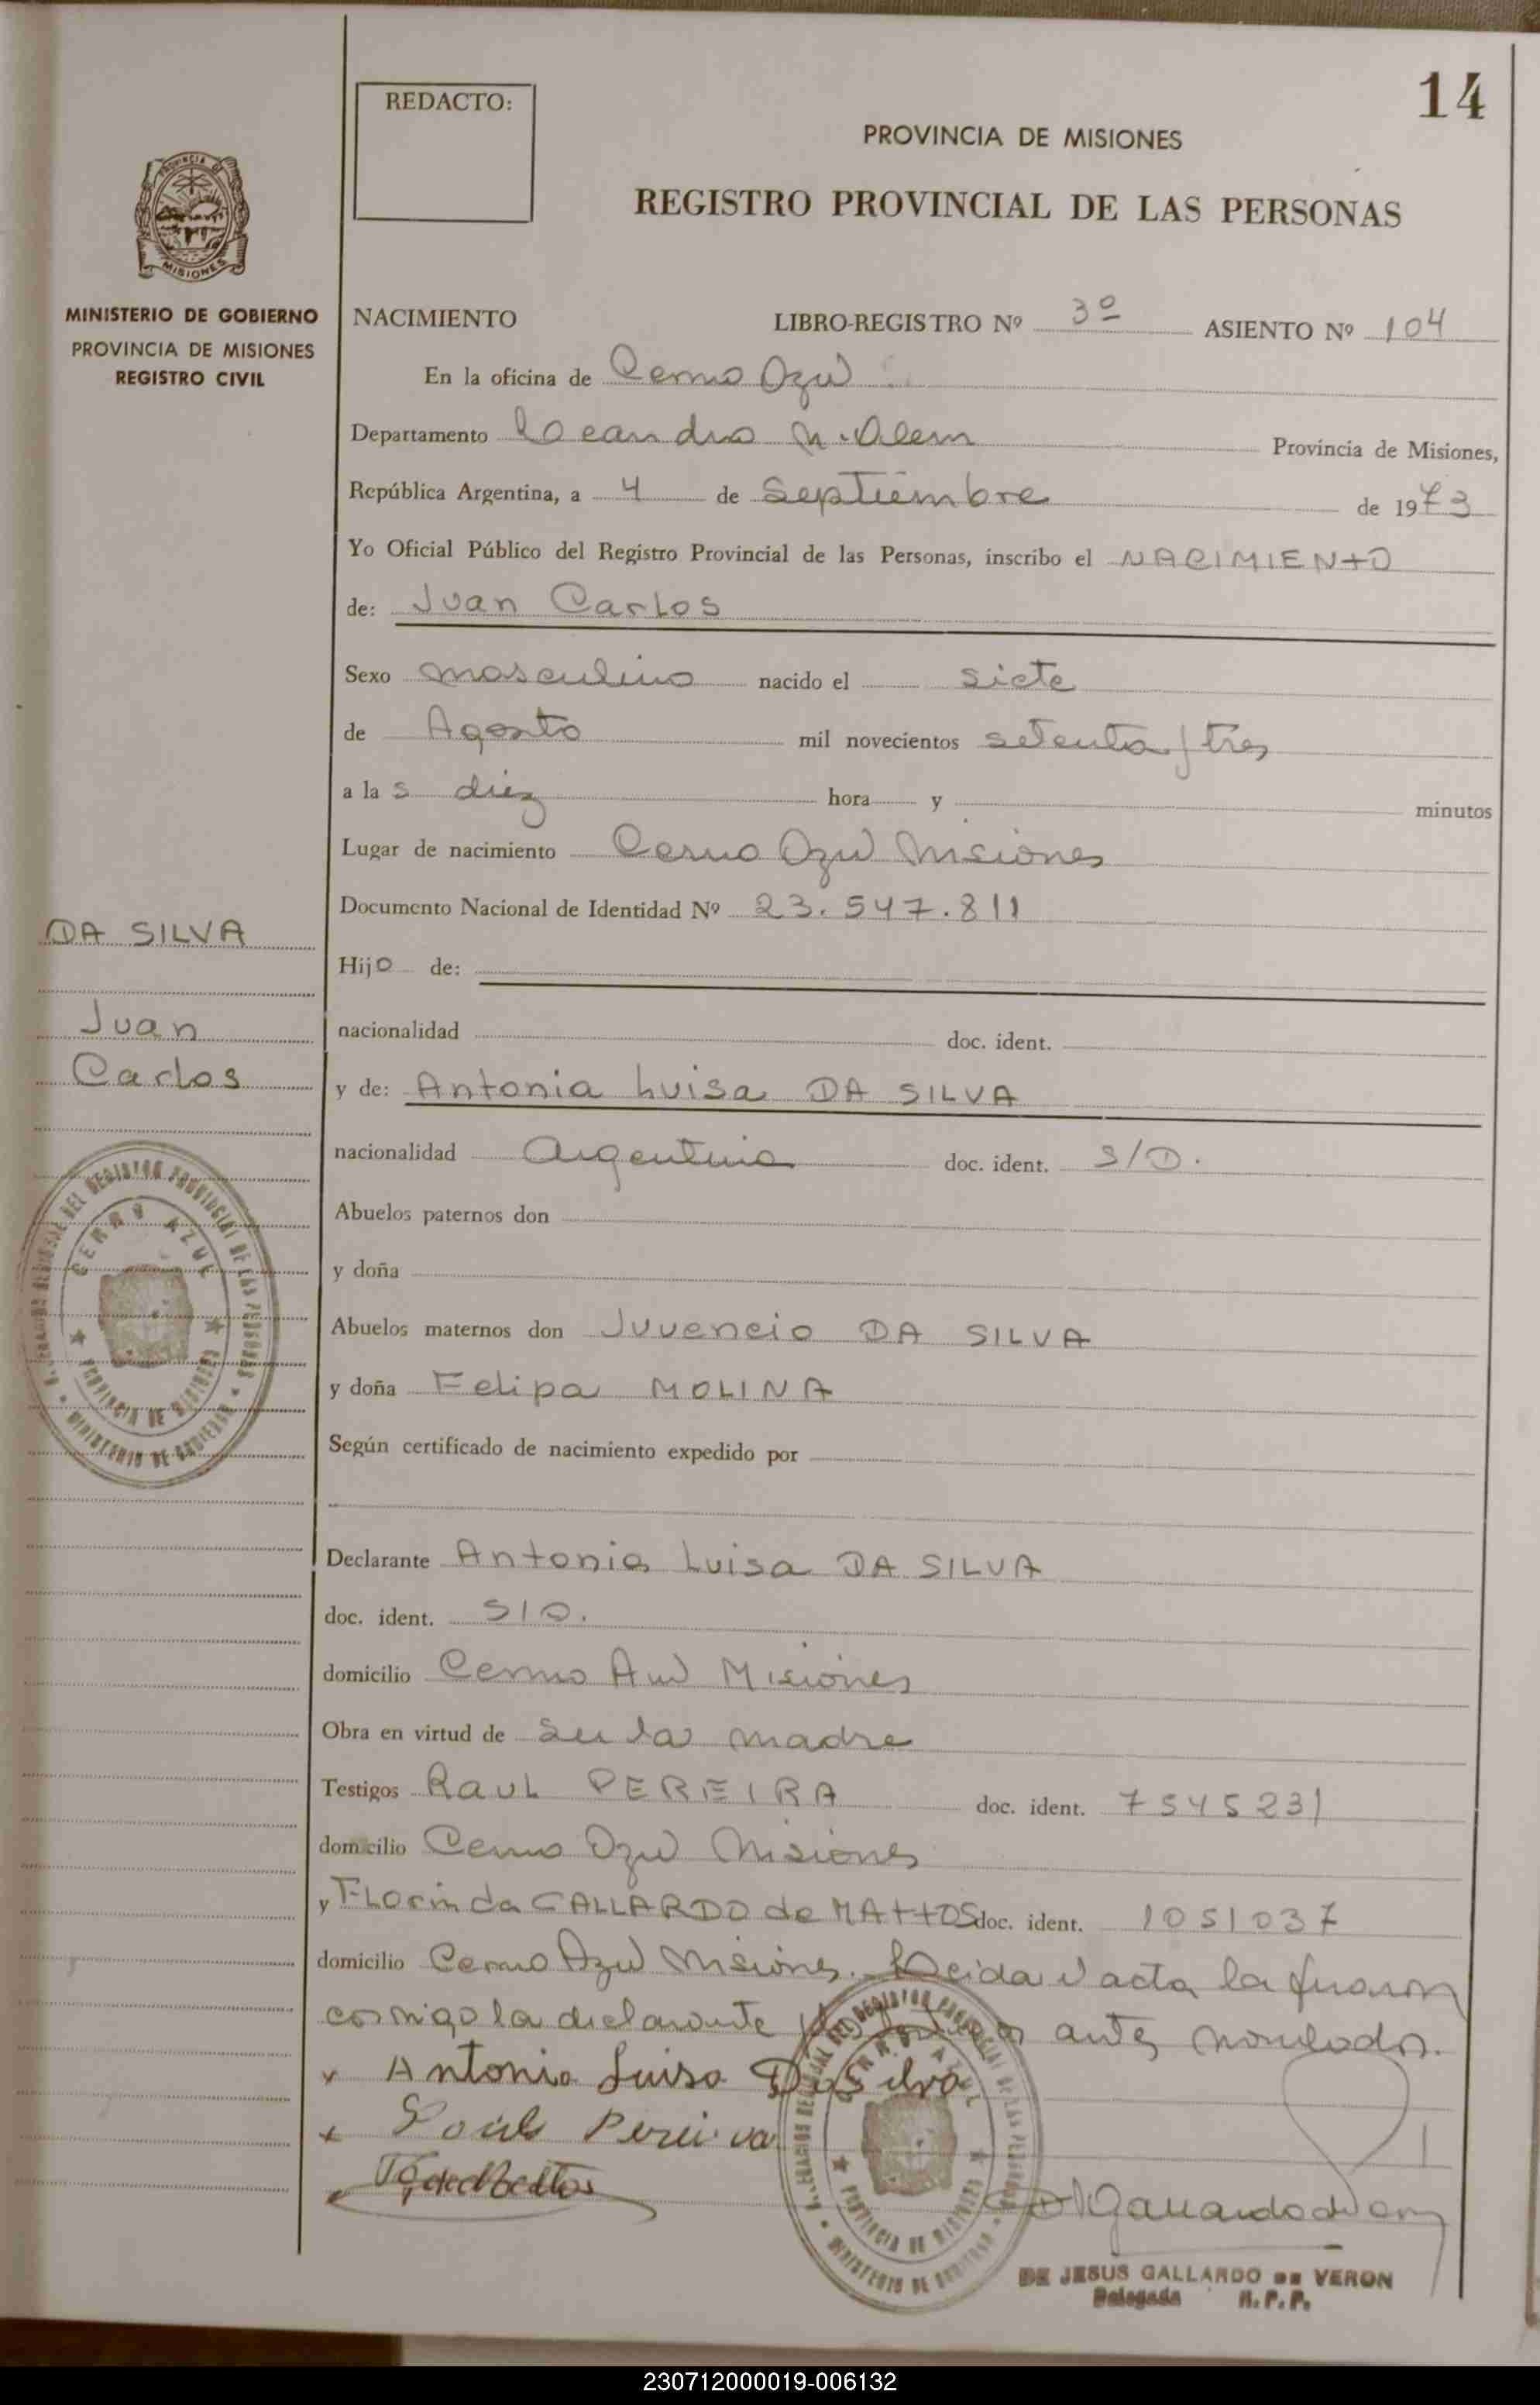 14
REDACTO:
PROVINCIA DE MISIONES
REGISTRO PROVINCIAL DE LAS PERSONAS
PROVINCIA DE
MISIONES
MINISTERIO DE GOBIERNO
PROVINCIA DE MISIONES
REGISTRO CIVIL
NACIMIENTO LIBRO-REGISTRO Nº 3º ASIENTO Nº 104
En la oficina de Cerro Azul
Departamento Leandro N. Alem Provincia de Misiones,
República Argentina, a 4 de Septiembre de 1973
Yo Oficial Público del Registro Provincial de las Personas, inscribo el NACIMIENTO
de: Juan Carlos
Sexo masculino nacido el siete
de Agosto mil novecientos setenta y tres
a las diez hora y minutos
Lugar de nacimiento Cerro Azul Misiones
Documento Nacional de Identidad Nº 23.547.811
DA SILVA
Juan
Carlos
Hijo de:
nacionalidad doc. ident.
y de: Antonia Luisa DA SILVA
nacionalidad Argentina doc. ident. S/D.
Abuelos paternos don
y doña
Abuelos maternos don Juvencio DA SILVA
y doña Felipa MOLINA
Según certificado de nacimiento expedido por
CERRO AZUL
PROVINCIA DE MISIONES
MINISTERIO DE GOBIERNO
Declarante Antonia Luisa DA SILVA
doc. ident. S/D.
domicilio Cerro Azul Misiones
Obra en virtud de Ser la madre
Testigos Raul PEREIRA doc. ident. 7545231
domicilio Cerro Azul Misiones
y Florinda GALLARDO de MATTOS doc. ident. 1051037
domicilio Cerro Azul Misiones. Leida el acta la firman
conmigo la declarante y los testigos antes nombrados.
x Antonia Luisa Da Silva
x Pereira
DE JESUS GALLARDO DE VERON
Delegada R.P.P.
230712000019-006132